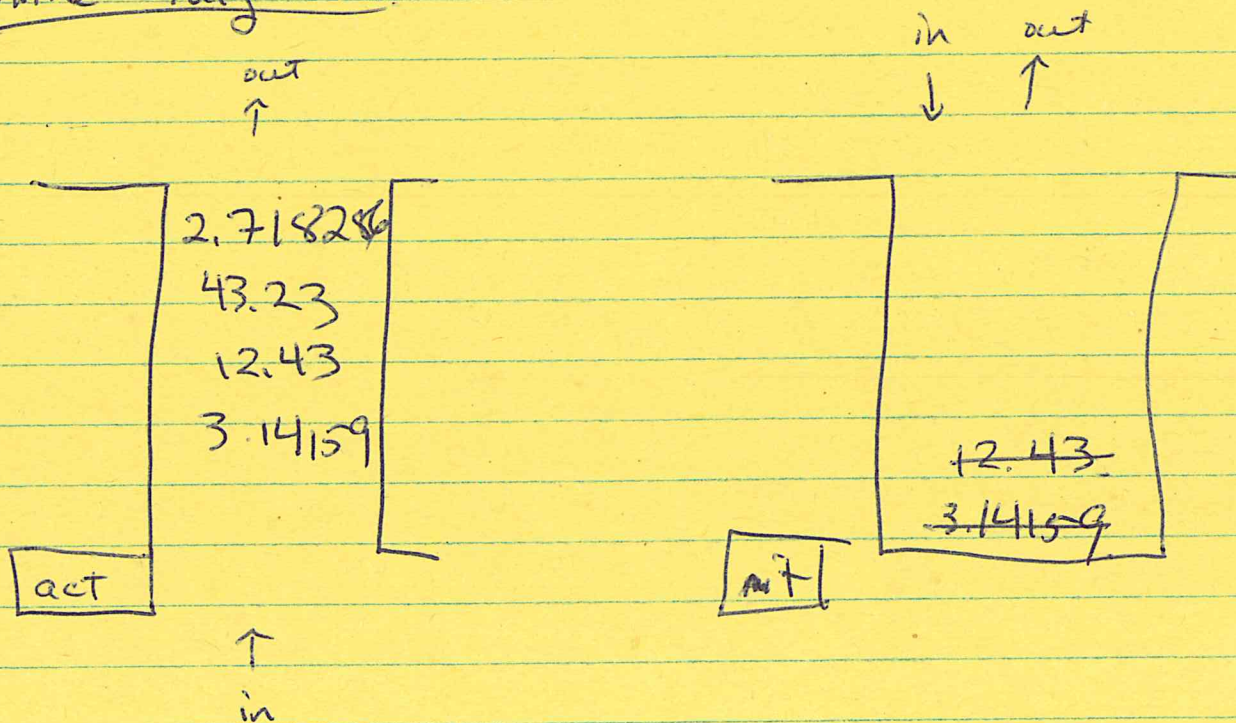 out
2.718286
43.23
12.43
3.14159
act
in
in out
12.43
3.14159